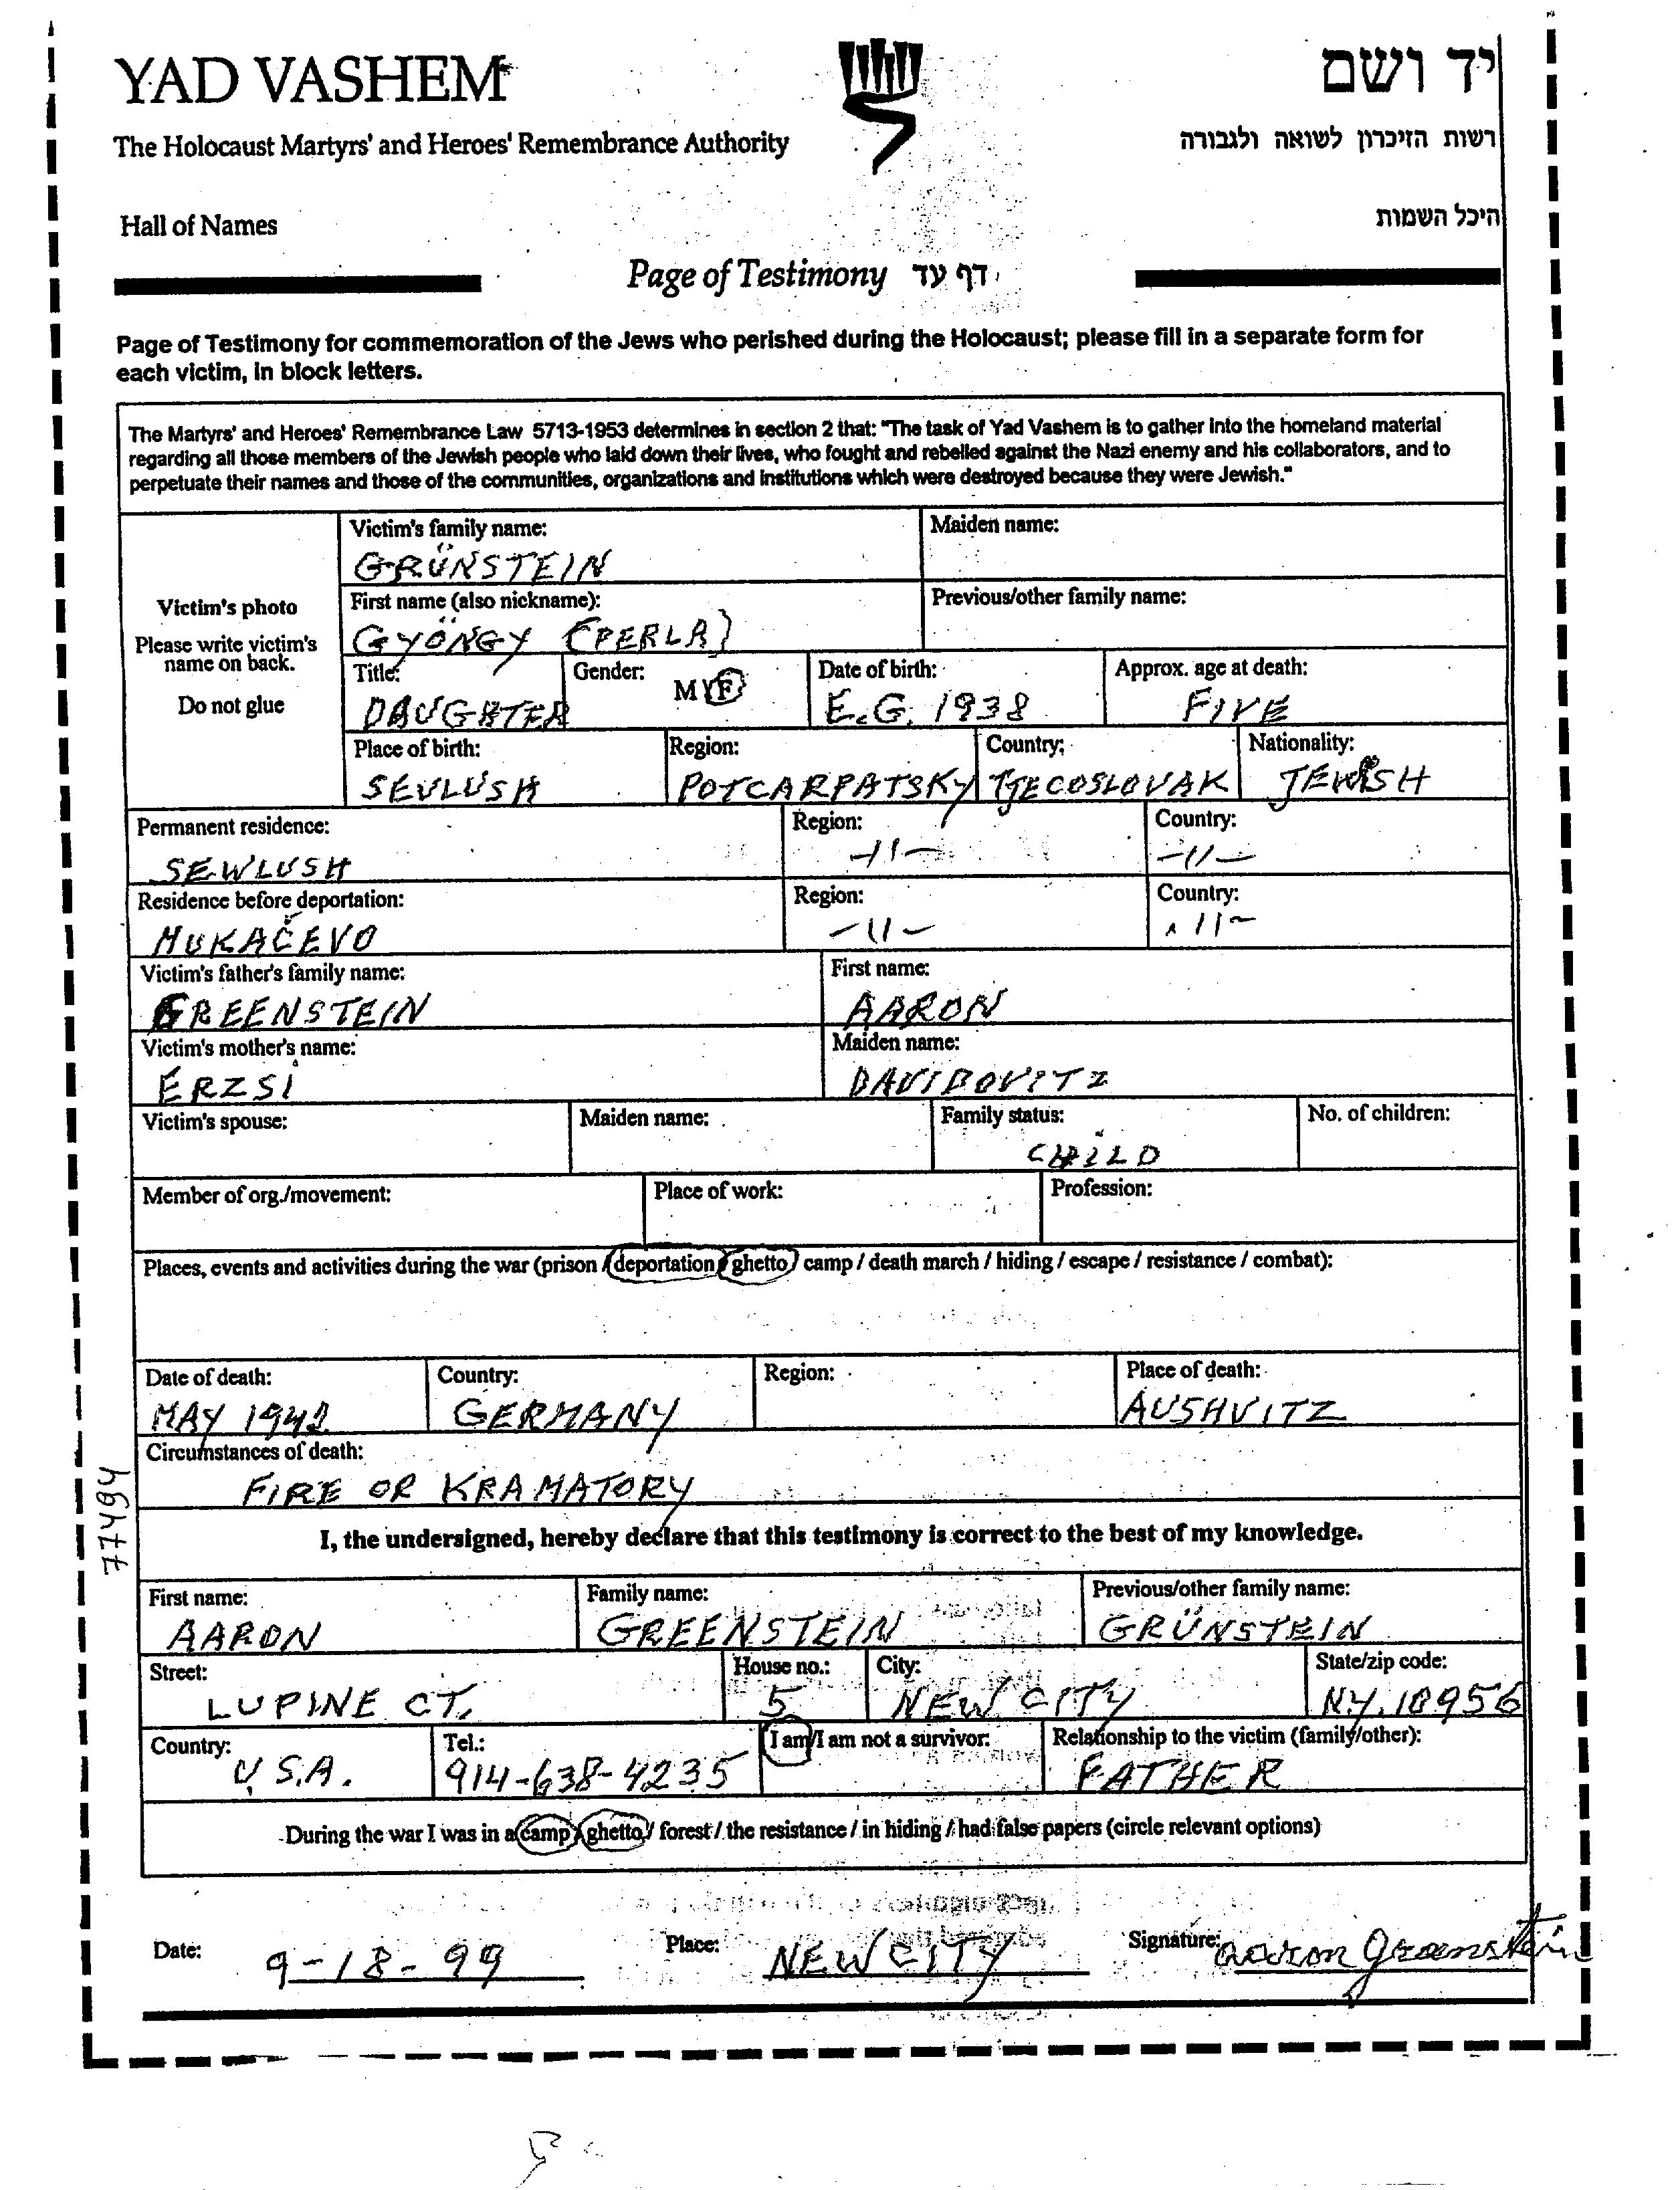 YAD VASHEM
יד ושם
The Holocaust Martyrs' and Heroes' Remembrance Authority
רשות הזיכרון לשואה ולגבורה
Hall of Names
היכל השמות
Page of Testimony דף עד
Page of Testimony for commemoration of the Jews who perished during the Holocaust; please fill in a separate form for
each victim, in block letters.
The Martyrs' and Heroes' Remembrance Law 5713-1953 determines in section 2 that: "The task of Yad Vashem is to gather into the homeland material
regarding all those members of the Jewish people who laid down their lives, who fought and rebelled against the Nazi enemy and his collaborators, and to
perpetuate their names and those of the communities, organizations and institutions which were destroyed because they were Jewish."
Victim's photo
Please write victim's
name on back.
Do not glue
Victim's family name: Maiden name:
GRÜNSTEIN
First name (also nickname): Previous/other family name:
GYÖNGY (PERLA)
Title: Gender: Date of birth: Approx. age at death:
DAUGHTER M/F E.G. 1938 FIVE
Place of birth: Region: Country: Nationality:
SEVLUSH POTCARPATSKY TJECOSLOVAK JEWISH
Permanent residence: Region: Country:
SEWLUSH -11- -11-
Residence before deportation: Region: Country:
MUKAČEVO -11- -11-
Victim's father's family name: First name:
GREENSTEIN AARON
Victim's mother's name: Maiden name:
ERZSI DAVIDOVITZ
Victim's spouse: Maiden name: Family status: No. of children:
CHILD
Member of org./movement: Place of work: Profession:
Places, events and activities during the war (prison / deportation / ghetto / camp / death march / hiding / escape / resistance / combat):
Date of death: Country: Region: Place of death:
MAY 1942 GERMANY AUSHVITZ
Circumstances of death:
FIRE OR KRAMATORY
77494
I, the undersigned, hereby declare that this testimony is correct to the best of my knowledge.
First name: Family name: Previous/other family name:
AARON GREENSTEIN GRÜNSTEIN
Street: House no.: City: State/zip code:
LUPINE CT. 5 NEW CITY N.Y. 10956
Country: Tel.: I am/I am not a survivor: Relationship to the victim (family/other):
U.S.A. 914-638-4235 FATHER
During the war I was in a camp / ghetto / forest / the resistance / in hiding / had false papers (circle relevant options)
Date: 9-18-99 Place: NEW CITY Signature: aaron Greenstein